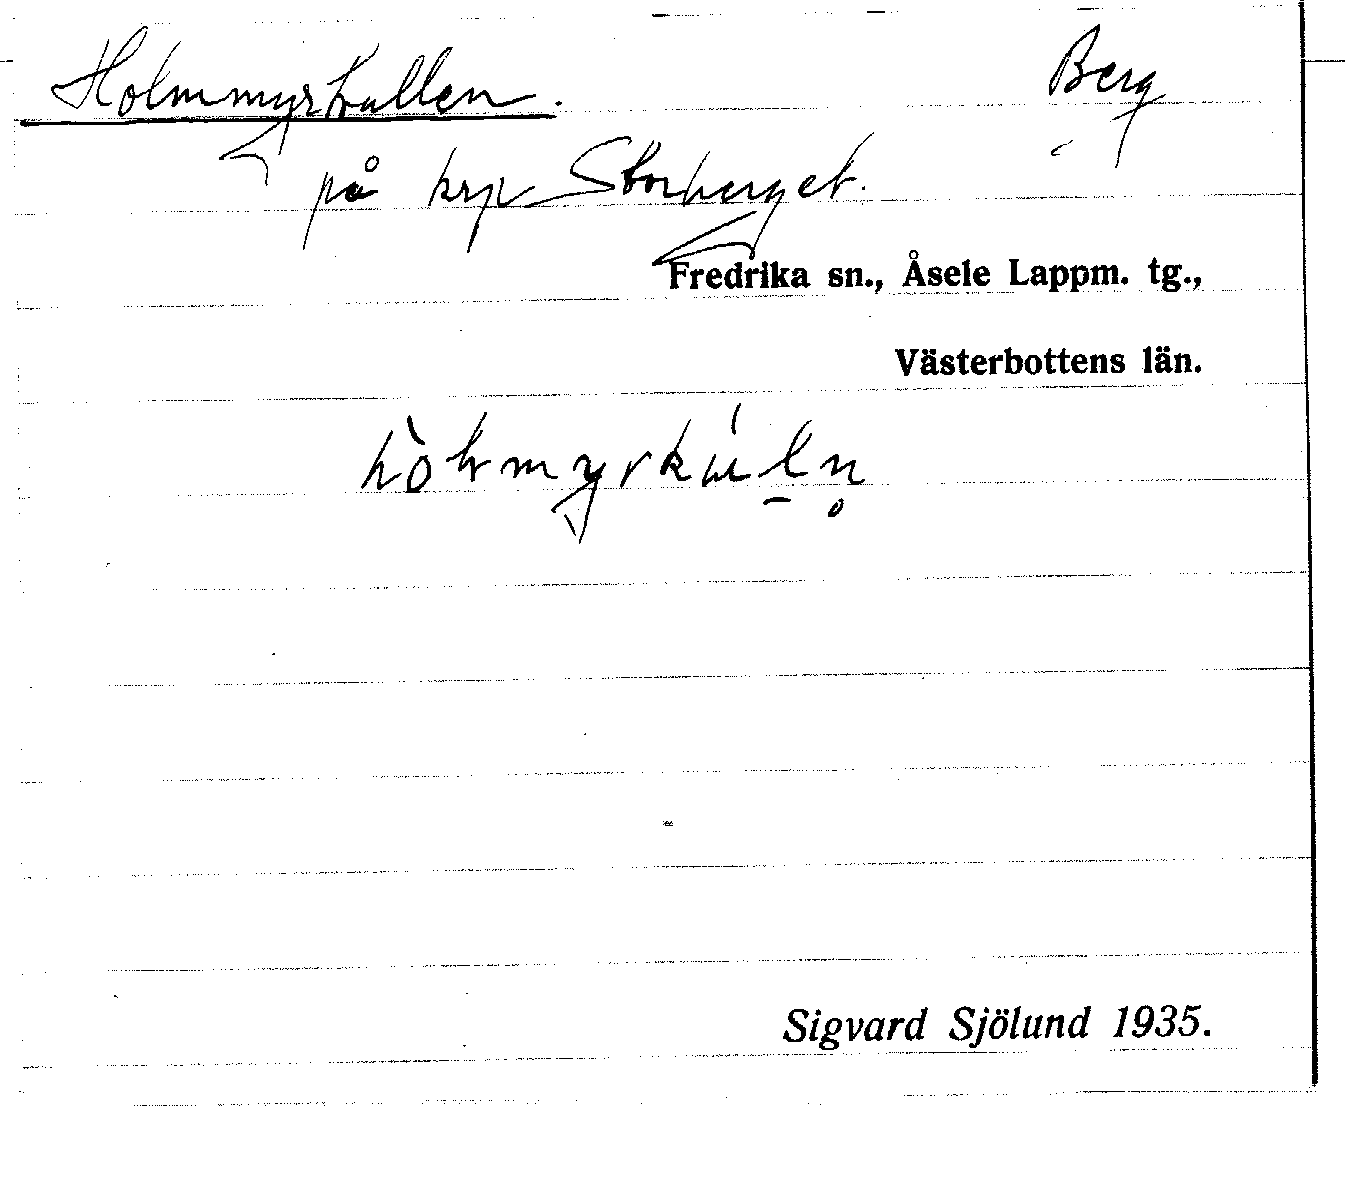 Holmmyrkullen. Berg
på krp Storberget.
Fredrika sn., Åsele Lappm. tg.,
Västerbottens län.
Sigvard Sjölund 1935.